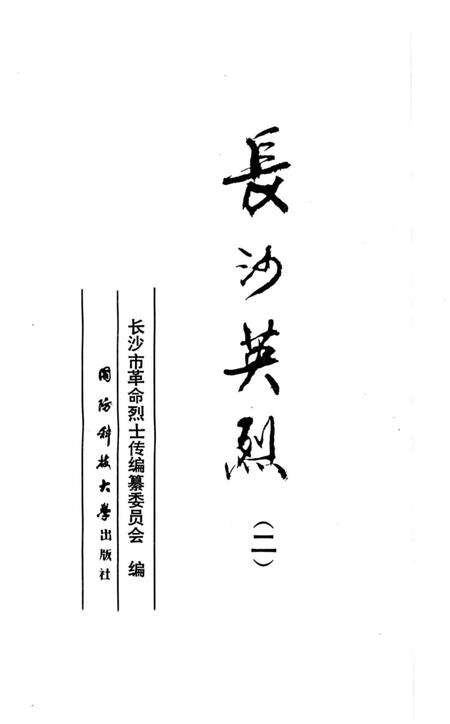 長沙英烈
(二)
长沙市革命烈士传编纂委员会 编
国防科技大学出版社